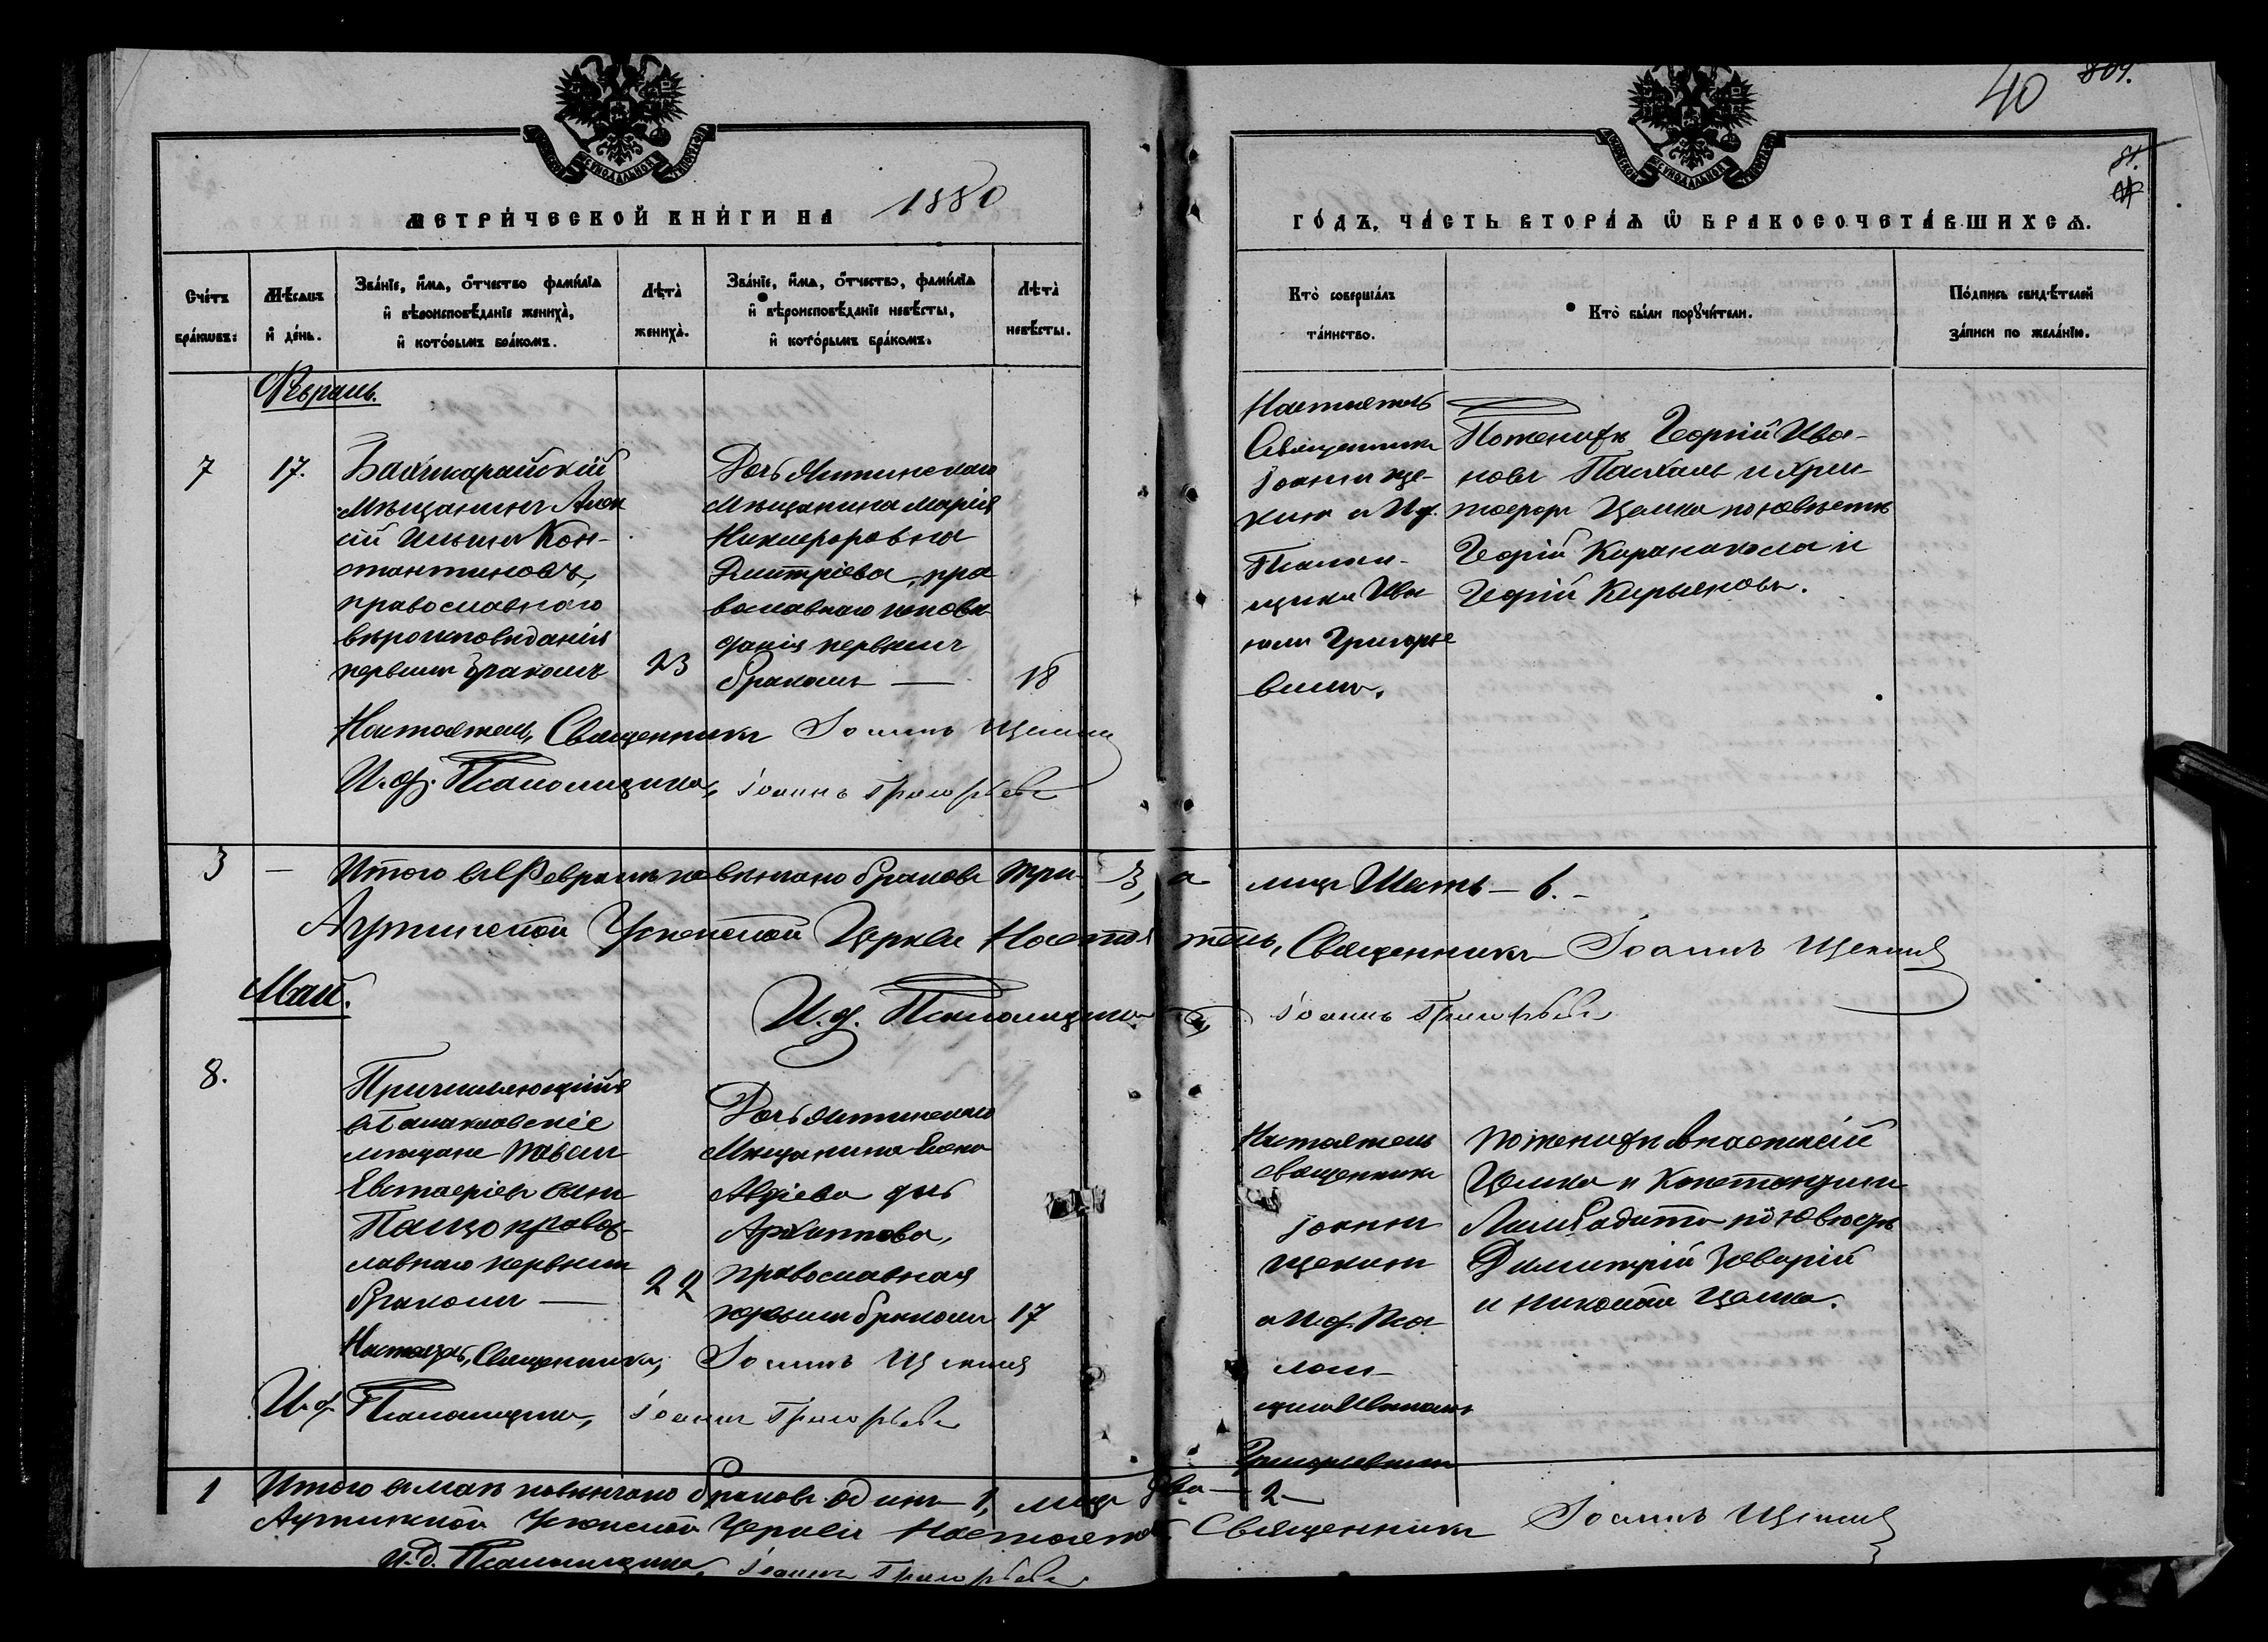 40 801.
81.
МЕТРИ́ЧЕСКОЙ КНИ́ГИ НА 1880
ГО́ДЪ, ЧА́СТЬ ВТОРА́Ѧ Ѿ БРАКОСОЧЕТА́ВШИХСѦ.
Сче́тъ бра́кѡвъ:
Мѣ́сѧцъ и҆ де́нь.
Зва́нїе, и҆́мѧ, ѻ҆́тчество фами́лїѧ
и҆ вѣроисповѣ́данїе жениха̀,
и҆ кото́рымъ бра́комъ.
Лѣта̀ жениха̀.
Зва́нїе, и҆́мѧ, ѻ҆́тчество, фами́лїѧ
и҆ вѣроисповѣ́данїе невѣ́сты,
и҆ кото́рымъ бра́комъ.
Лѣта̀ невѣ́сты.
Кто̀ соверша́лъ
та́инство.
Кто̀ бы́ли порꙋчи́тели.
По́дпись свидѣ́телей
за́писи по жела́нїю.
Февраль.
7
17.
Мѣщанинъ
Ильинъ Кон-
стантиновъ,
православнаго
вѣроисповѣданія
первымъ бракомъ
23
Дочь Ялтинскаго
Мѣщанина Марія
Никифоровна
Дмитріева, пра
вославнаго исповѣ
данія первымъ
бракомъ —
18
Настоятель
Священникъ
Іоаннъ Ще-
кинъ и И.ф.
Псалом-
щика Ива
нъ Григорье
вымъ.
По женихѣ Георгій Ива-
новъ и Хри-
стофоръ Цомка по невѣстѣ
Георгій и
Георгій Кирьяковъ.
Настоятель, Священникъ Іоаннъ Щекинъ
И.ф. Псаломщика, Іоаннъ Григорьевъ
3 — Итого въ Февралѣ повѣнчано браковъ три — 3, а лицъ Шесть — 6. —
Аутинской Успенской Церкви Настоятель, Священникъ Іоаннъ Щекинъ
И.ф. Псаломщика Іоаннъ Григорьевъ
Май.
8.
Причисляющійся
въ Балаклавскіе
мѣщане
православнаго первымъ
бракомъ —
22
Дочь Ялтинскаго
Мѣщанина Елена
Авдіева дочь
Архиппова,
православная
первымъ бракомъ
17
Настоятель
священникъ
Іоаннъ
Щекинъ
и И.ф. Пса
лом-
щика Иваномъ
Григорьевымъ
По женихѣ Анастасій
Цомка и Константинъ
по невѣстѣ
Димитрій
и Николай Цомка.
Настоятель, Священникъ, Іоаннъ Щекинъ
И.ф. Псаломщика, Іоаннъ Григорьевъ
1 Итого въ маѣ повѣнчано браковъ одинъ — 1, лицъ два — 2 —
Аутинской Успенской Церкви Настоятель Священникъ Іоаннъ Щекинъ
И.д. Псаломщика, Іоаннъ Григорьевъ